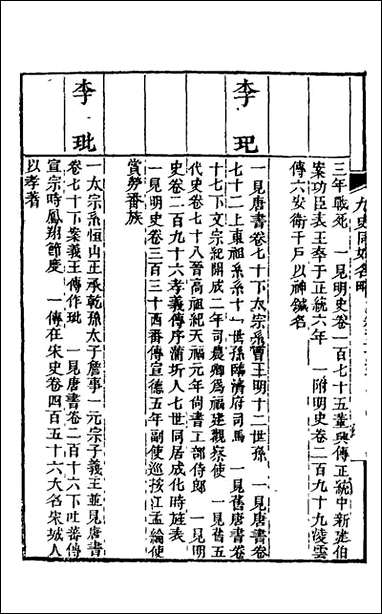 九史同姓名略
三年戰死 一見明史卷一百七十五董興傳正統中新建伯
案功臣表王奉于正統六年 一附明史卷二百九十九淩雲
傳六安衛千戶以神鍼名
李玘
一見唐書卷七十下太宗系曹王明十二世孫 一見唐書卷
七十二上東祖系系十一世孫臨清府司馬 一見舊唐書卷
十七下文宗紀開成二年司農卿爲福建觀察使 一見舊五
代史卷七十八晉高祖紀天福元年尙書工部侍郎 一見明
史卷二百九十六孝義傳序蒲圻人七世同居成化時旌表
一見明史卷三百三十西番傳宣德五年副使巡按江孟綸使
賞勞番族
李玼
一太宗系恒山正承乾孫太子詹事一元宗子義王並見唐書
卷七十下案義王傳作玼 一見唐書卷二百十六下吐蕃傳
宣宗時鳳翔節度 一傳在宋史卷四百五十六大名宋城人
以孝著